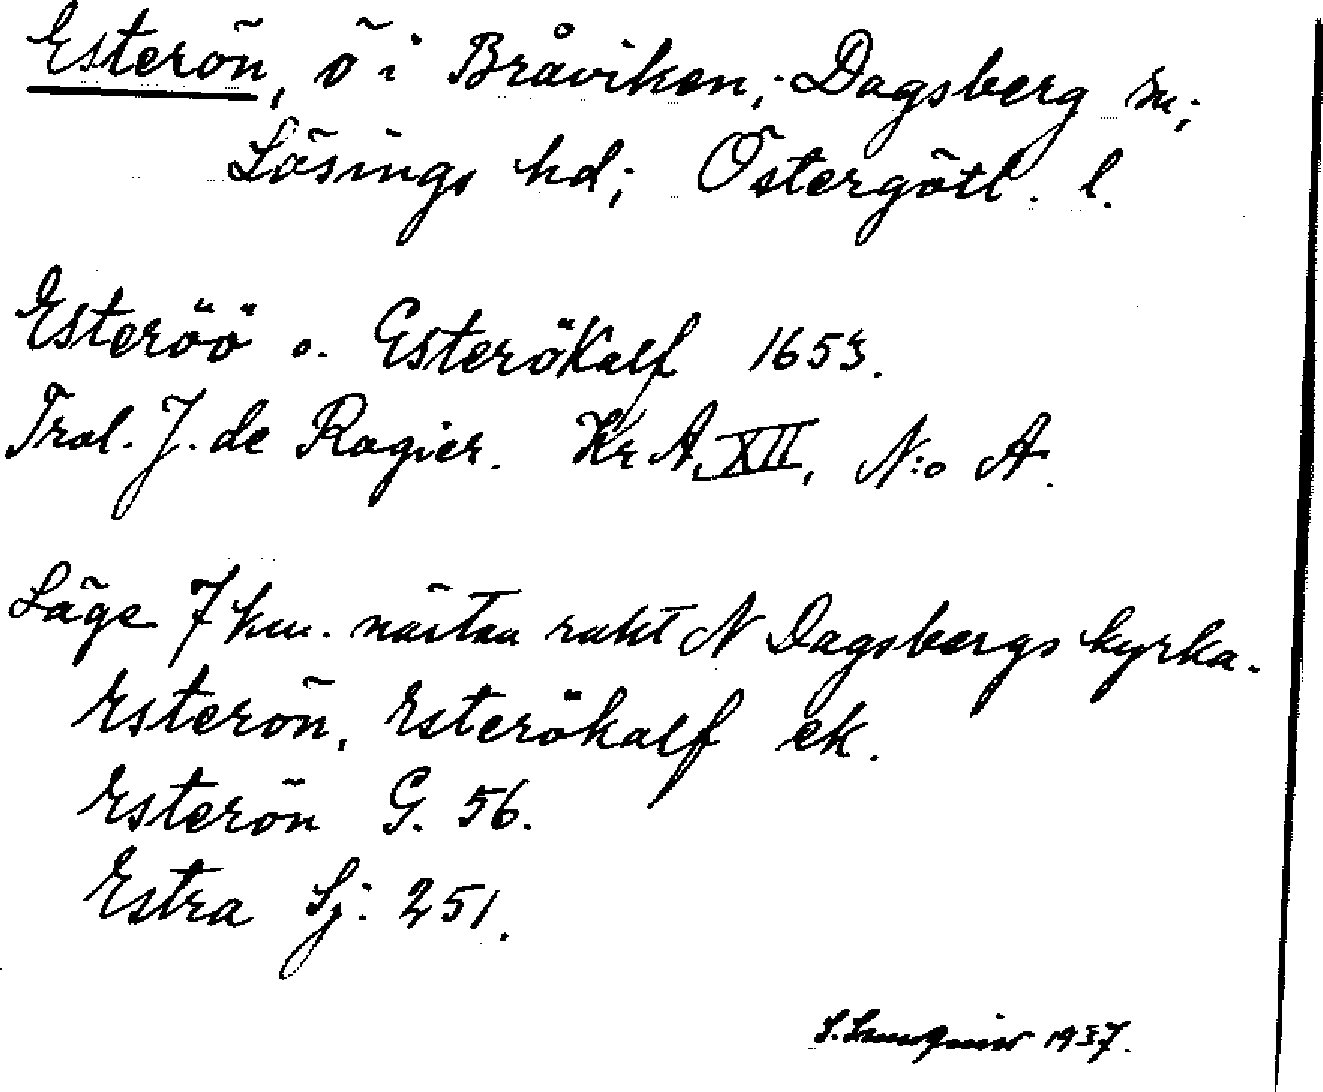 Esterön, ö i Bråviken; Dagsberg sn;
Lösings hd; Östergötl. l.
Esteröö o. Esterökalf 1653.
Tral. J. de Rogier. KrA, XII, N:o A.
Läge 7 km. nästan rakt N Dagsbergs kyrka.
Esterön, Esterökalf ek.
Esterön G. 56.
Estra Sj: 251.
S. 1937.